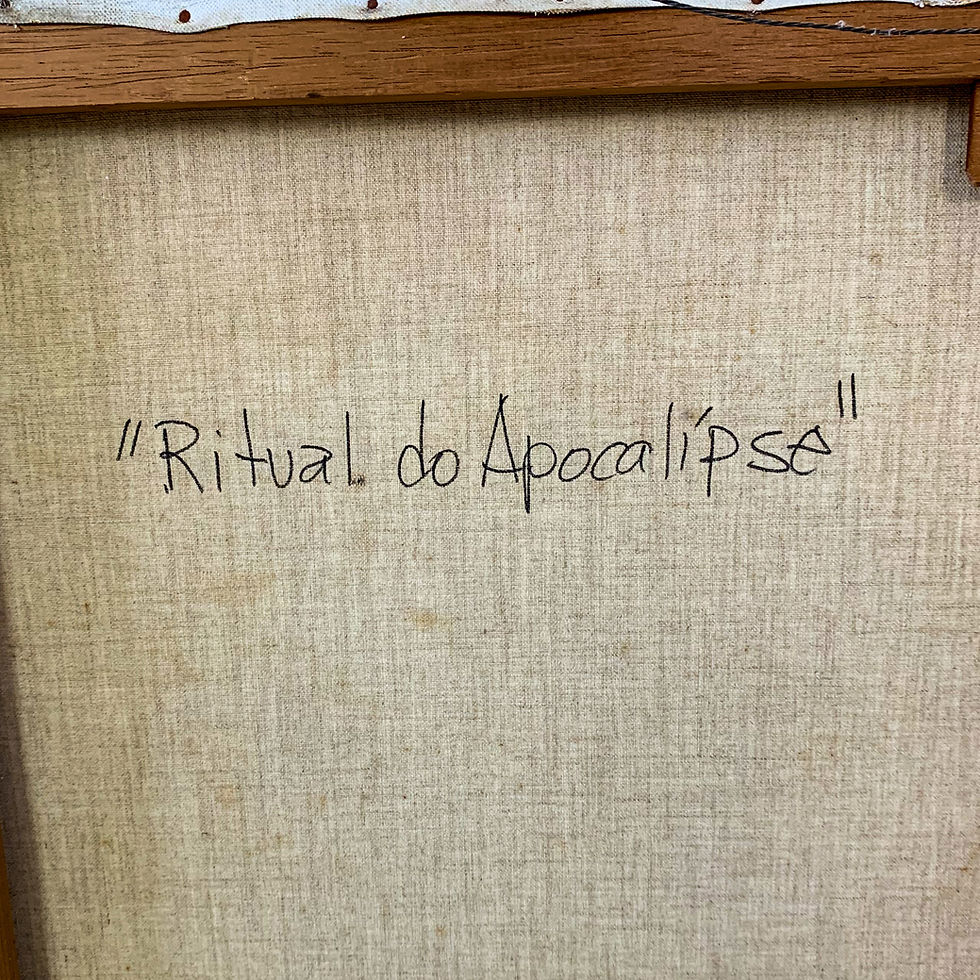 "Ritual do Apocalípse"